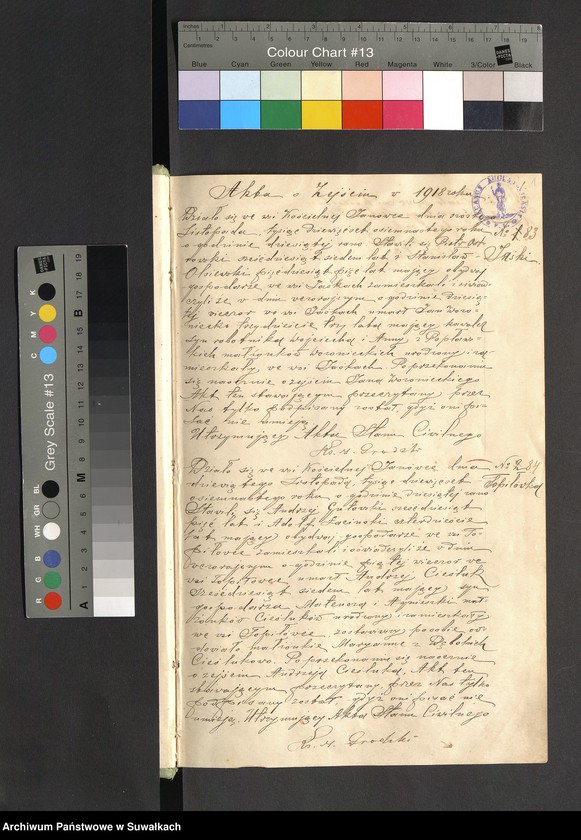 Inches 1 2 3 4 5 6 7 8
Centimetres 1 2 3 4 5 6 7 8 9 10 11 12 13 14 15 16 17 18 19
Colour Chart #13
Blue Cyan Green Yellow Red Magenta White 3/Color Black
Grey Scale #13
Akta o Zejściu w 1918 roku
Działo się we wsi Kościelnej Janówce dnia
Listopada, tysiąc dziewięćset osiemnastego roku
83
o godzinie dziesiątej rano. Stawili się Piotr
sześćdziesiąt siedem lat i Stanisław
Jaśki
pięćdziesiąt pięć lat mający obydwaj
gospodarze we wsi Jaśkach zamieszkali i
czyli że w dniu wczorajszym o godzinie
wieczor we wsi Jaśkach umarł Jan
trzydzieście trzy lata mający kawaler
syn robotnika Wojciecha i Anny z
małżonków Woronieckich urodzony i za-
mieszkały we wsi Jaśkach. Po przekonaniu
się naocznie o zejściu Jana Woronieckiego
Akt ten stawającym przeczytany przez
Nas tylko podpisany został, gdyż oni pi-
sać nie umieją.
Utrzymujący Akta Stanu Cywilnego
Ks. A. Grodzki
Działo się we wsi Kościelnej Janówce dnia
№ 84
dziewiątego Listopada, tysiąc dziewięćset
osiemnastego roku o godzinie dziesiątej rano
Stawili się Andrzej Gutowski sześćdziesiąt
pięć lat i Adolf czterdzieście
lat mający obydwaj gospodarze we wsi To-
piłówce zamieszkali i oświadczyli że w dniu
wczorajszym o godzinie piątej wieczor we
wsi Topiłówce umarł Andrzej Cieśluk
sześćdziesiąt siedem lat mający syn
gospodarza Mateusza i Agnieszki mał-
żonków Cieśluków urodzony i zamieszkały
we wsi Topiłówce zostawiwszy po sobie ow-
dowiałą małżonkę Maryannę z
Cieślukową. Po przekonaniu się naocznie
o zejściu Andrzeja Cieśluka, Akt ten
stawającym przeczytany przez Nas tylko
podpisany został, gdyż oni pisać nie
umieją. Utrzymujący Akta Stanu Cywilnego
Ks. A. Grodzki
Archiwum Państwowe w Suwałkach